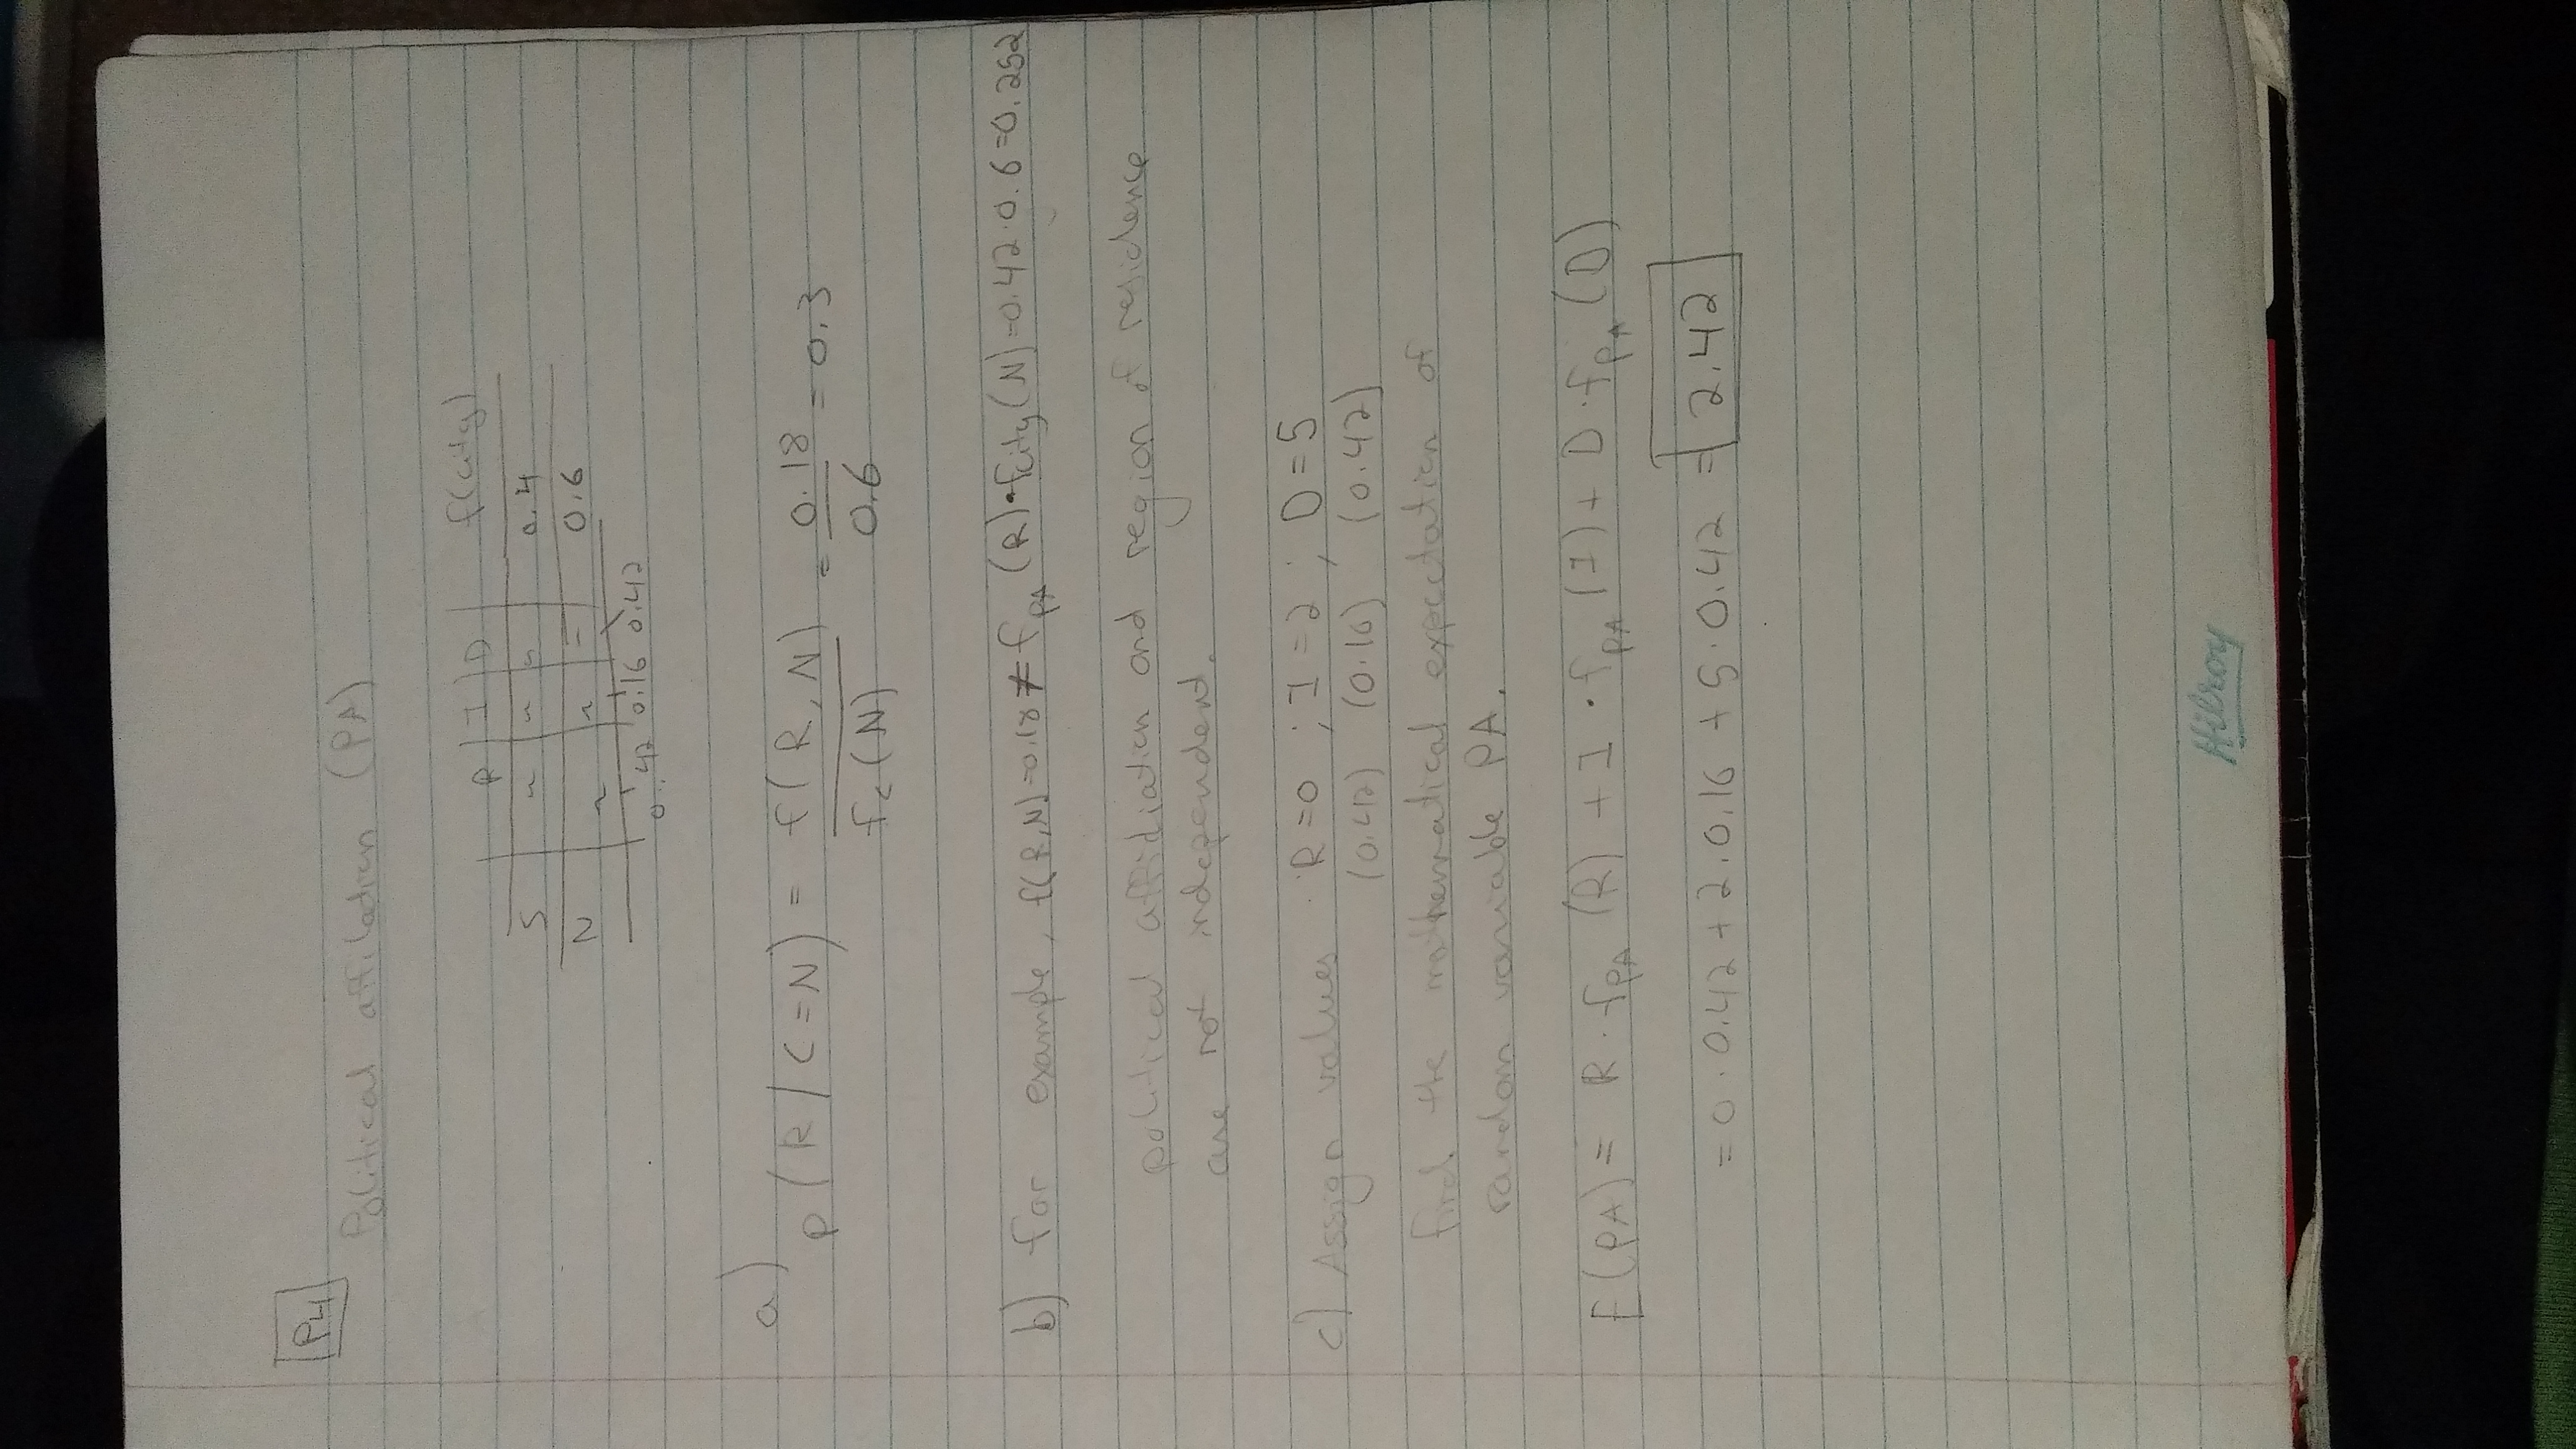 P4
Political affiladien (PA)
R | I | D f(city)
S " " " 0.4
N " " = 0.6
0.42 0.16 0.42
a)
P(R/C=N) = f(R,N) / fc(N) = 0.18 / 0.6 = 0.3
b) For example, f(R,N)=0.18 ≠ fPA(R)·fcity(N)=0.42·0.6=0.252
political affidiatien and region of residence
are not independend.
c) Assign values R=0 ; I=2 ; D=5
(0.42) (0.16) (0.42)
find the mathematical expectation of
random variable PA.
E(PA) = R·fPA(R) + I·fPA(I) + D·fPA(D)
= 0·0.42 + 2·0.16 + 5·0.42 = 2.42
Hilroy